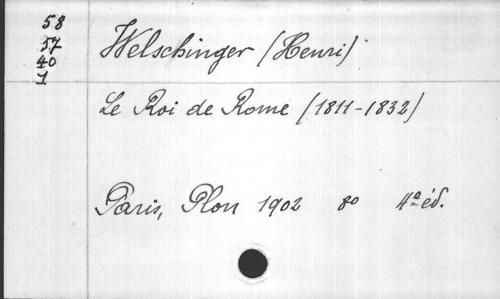 58
57
40
1
Welschinger (Henri)
Le Roi de Rome (1811-1832)
Paris, Plon 1902 8º 4º éd.